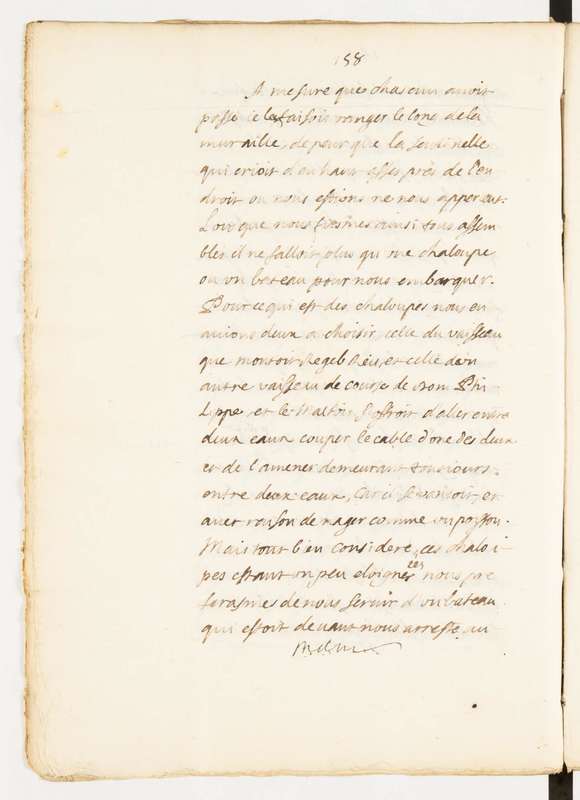 158
A mesure que chascun auoit
passé ie le faisois ranger le long de la
muraille, de peur que la sentinelle
qui crioit d'en haut asses près de l'en
droit ou nous estions ne nous apperceut.
Lorsque nous fusmes ainsi tous assem
bles il ne falloit plus qu'une chaloupe
ou un bateau pour nous embarquer.
Pour ce qui est des chaloupes nous en
auions deux a choisir, celle du vaisseau
que montoit Regeb Reis, et celle d'un
autre vaisseau de course de nom Phi
lippe, et le Maltois s'offroit d'aller entre
deux eaux couper le cable d'une des deux
et de l'amener demeurant tousiours
entre deux eaux, car il se vantoit, et
auec raison de nager comme un poisson.
Mais tout bien consideré, ces chalou
pes estant un peu eloignées nous pre
ferasmes de nous seruir d'un bateau
qui estoit deuant nous arresté au